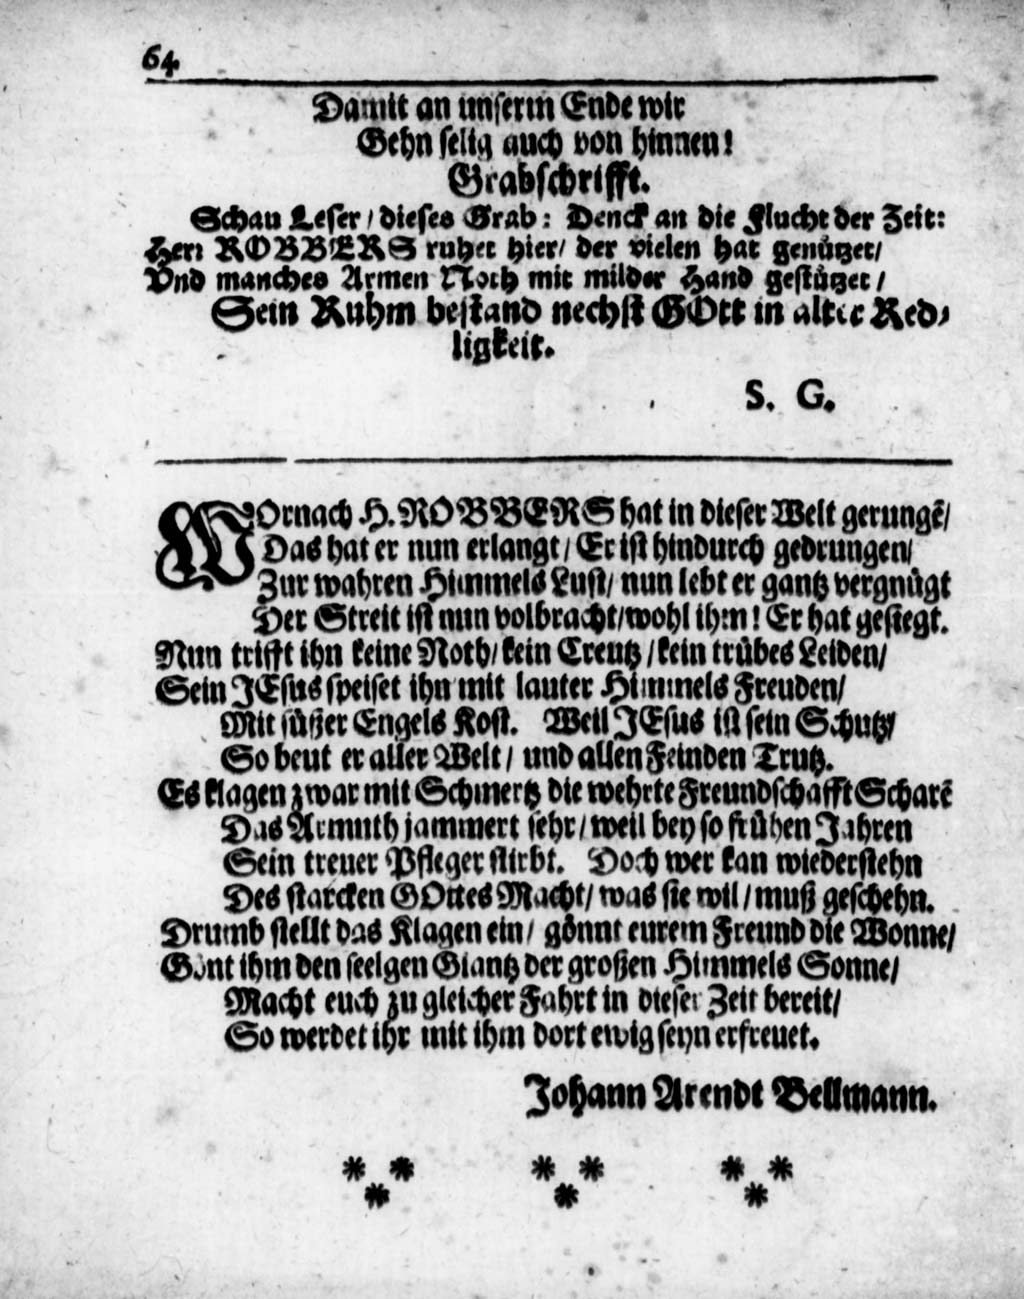 64.
Damit an unserm Ende wir
Gehn selig auch von hinnen!
Grabschrifft.
Schau Leser / dieses Grab: Denck an die Flucht der Zeit:
Herr ROBBERS ruhet hier/ der vielen hat genützet/
Vnd manches Armen Noth mit milder Hand gestützet /
Sein Ruhm bestand nechst GOtt in alter Red-
ligkeit.
S. G.
WOrnach H. ROBBERS hat in dieser Welt gerungē/
Das hat er nun erlangt / Er ist hindurch gedrungen/
Zur wahren Himmels Lust/ nun lebt er gantz vergnügt
Der Streit ist nun volbracht/wohl ihm! Er hat gesiegt.
Nun trifft ihn keine Noth/ kein Creutz /kein trübes Leiden/
Sein JEsus speiset ihn mit lauter Himmels Freuden/
Mit süßer Engels Kost. Weil JEsus ist sein Schutz/
So beut er aller Welt / und allen Feinden Trutz.
Es klagen zwar mit Schmertz die wehrte Freundschafft Scharē
Das Armuth jammert sehr/ weil bey so frühen Jahren
Sein treuer Pfleger stirbt. Doch wer kan wiederstehn
Des starcken GOttes Macht/ was sie wil / muß geschehn.
Drumb stellt das Klagen ein/ gönnt eurem Freund die Wonne/
Gönt ihm den seelgen Glantz der großen Himmels Sonne/
Macht euch zu gleicher Fahrt in dieser Zeit bereit/
So werdet ihr mit ihm dort ewig seyn erfreuet.
Johann Arendt Bellmann.